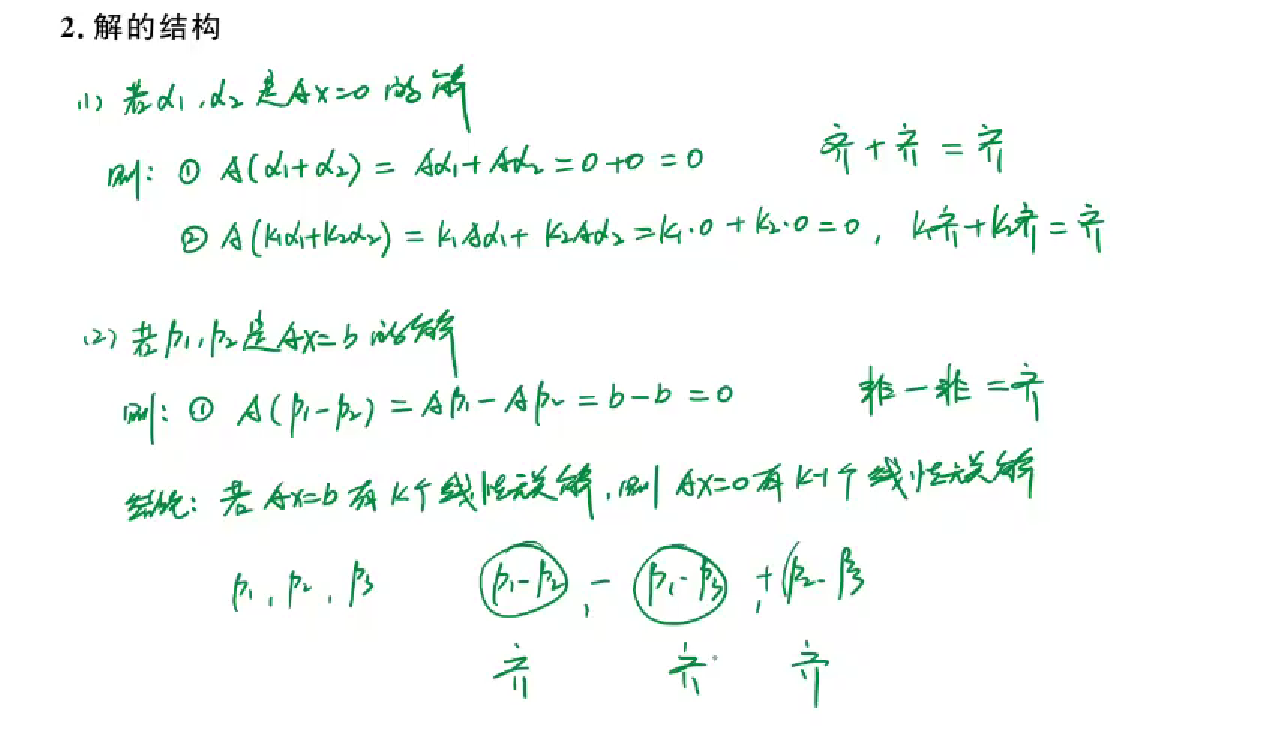 2. 解的结构
(1) 若α₁,α₂是Ax=0的解
则: ① A(α₁+α₂) = Aα₁+Aα₂ = 0+0 = 0 齐+齐=齐
② A(k₁α₁+k₂α₂) = k₁Aα₁+k₂Aα₂ = k₁·0+k₂·0 = 0, k₁齐+k₂齐=齐
(2) 若β₁,β₂是Ax=b的解
则: ① A(β₁-β₂) = Aβ₁-Aβ₂ = b-b = 0 非-非=齐
结论: 若Ax=b有k个线性无关解,则Ax=0有k-1个线性无关解
β₁,β₂,β₃ β₁-β₂, - β₁-β₃, +(β₂-β₃
齐 齐 齐